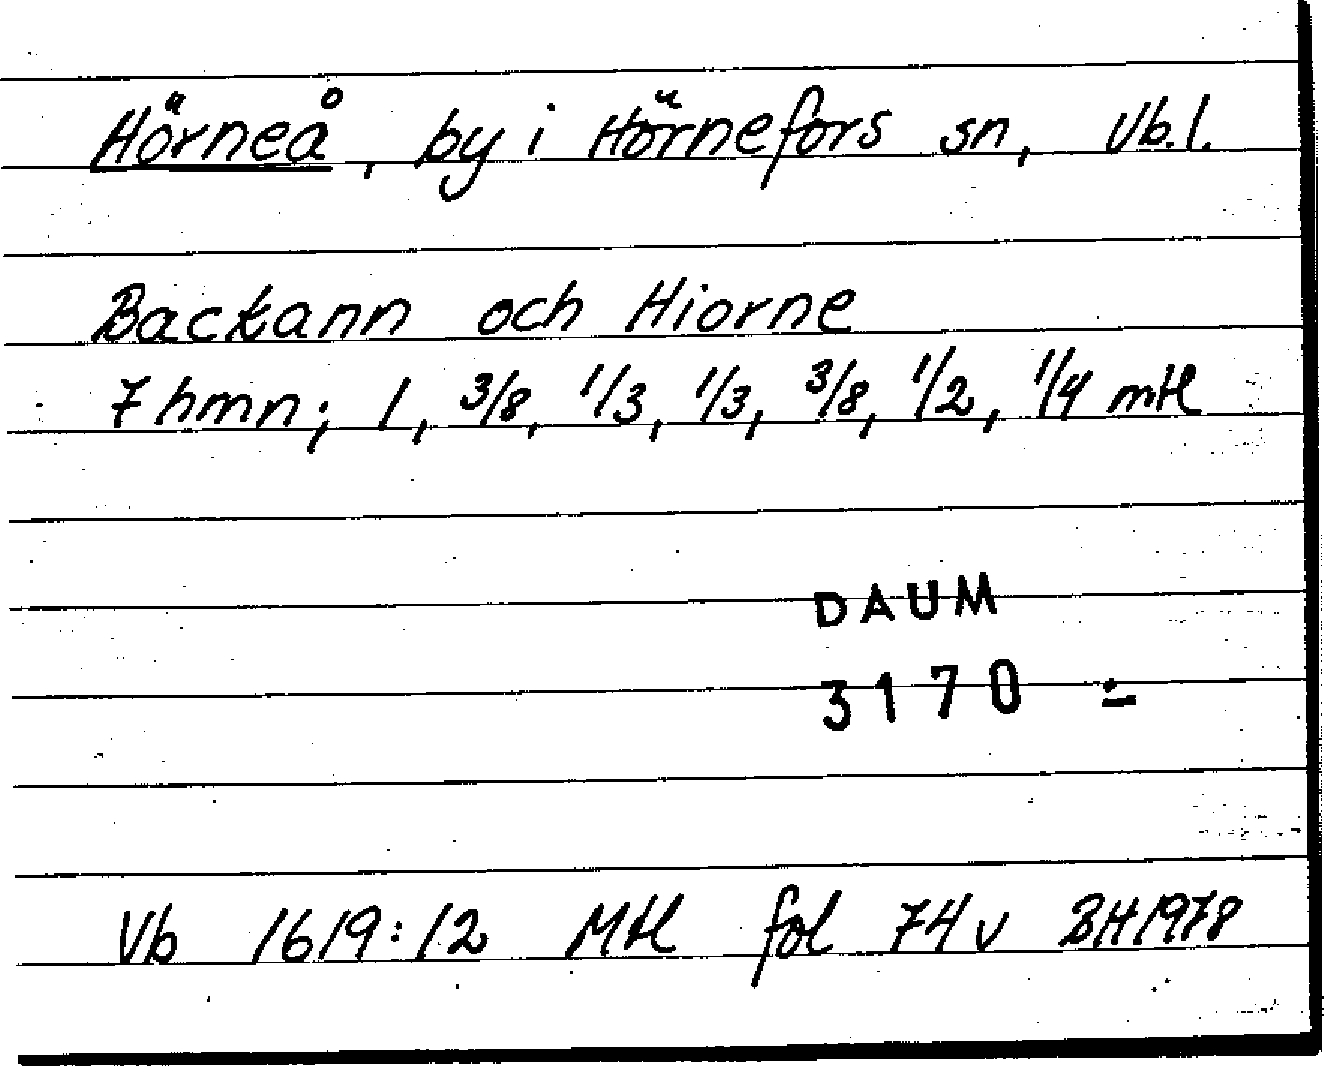 Hörneå, by i Hörnefors sn, Vb.l.
Backann och Hiorne
7 hmn; 1, 3/8, 1/3, 1/3, 3/8, 1/2, 1/4 mtl
DAUM
3170 -
Vb 1619:12 Mtl fol 74v BH1978